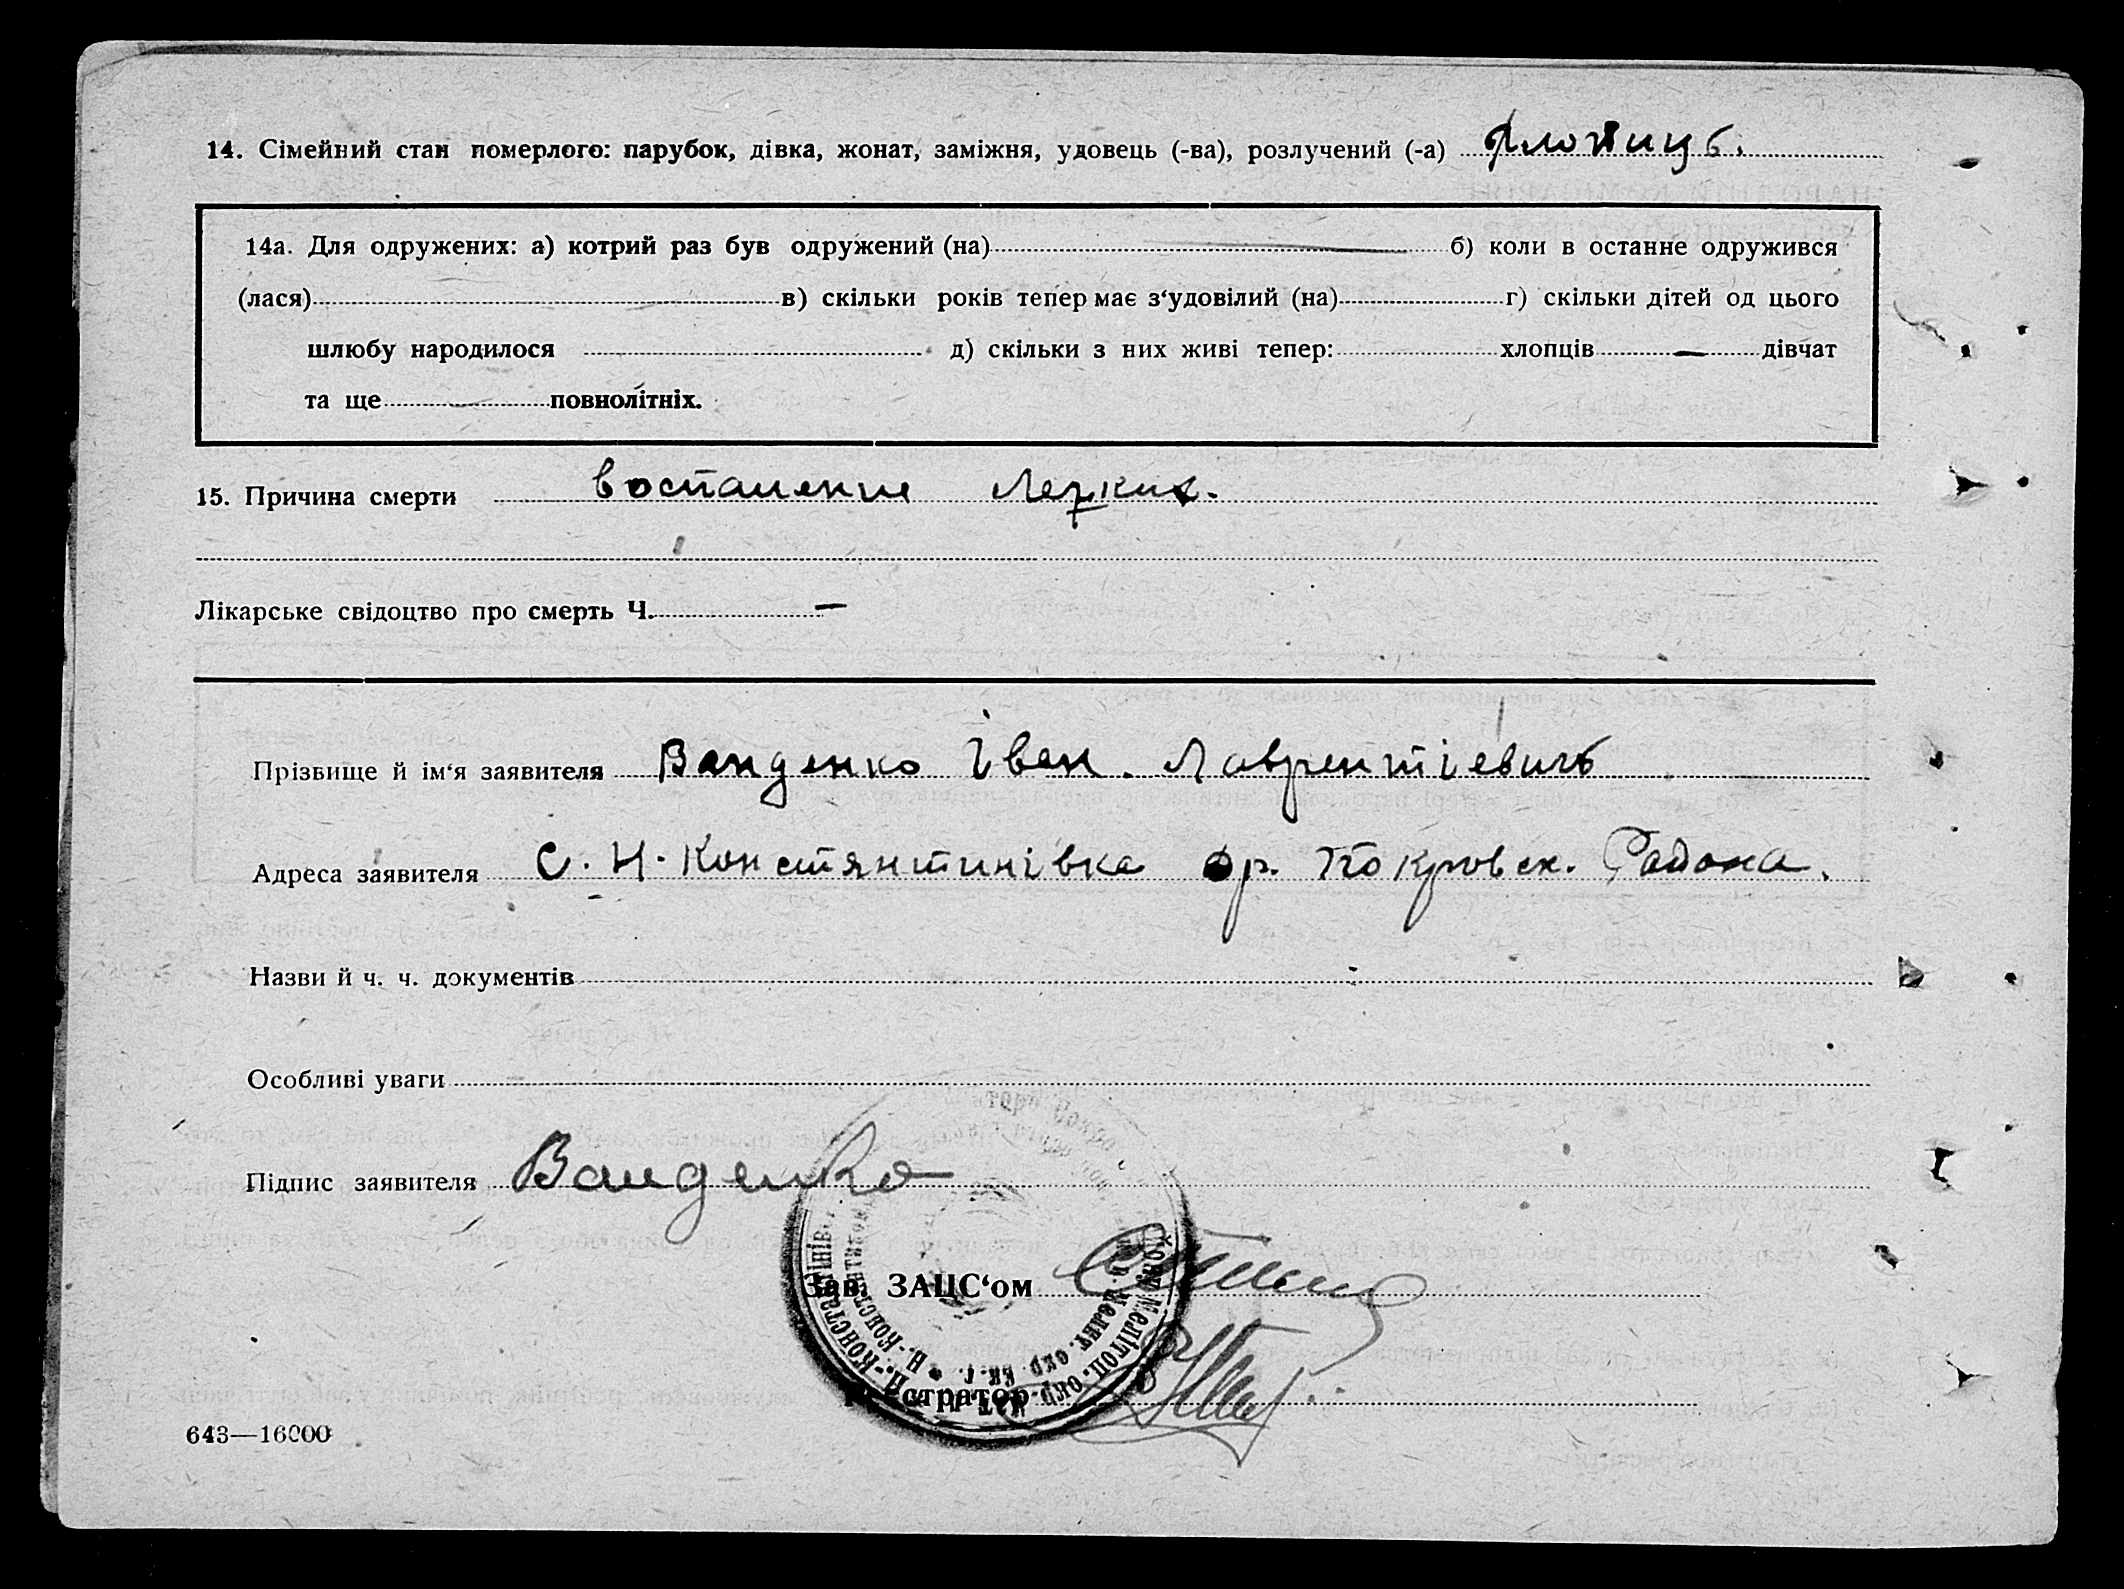 14. Сімейний стан померлого: парубок, дівка, жонат, заміжня, удовець (-ва), розлучений (-а) хлопиць.
14а. Для одружених: а) котрий раз був одружений (на) б) коли в останне одружився
(лася) в) скільки років тепер має з‘удовілий (на) г) скільки дітей од цього
шлюбу народилося д) скільки з них живі тепер: хлопців — дівчат
та ще повнолітніх.
15. Причина смерти воспаление Легких.
Лікарське свідоцтво про смерть Ч. —
Прізвище й ім‘я заявителя Ванденко Іван. Лаврентіевичь
Адреса заявителя С. Н-Констянтинівка Покровск. Району.
Назви й ч. ч. документів
Особливі уваги
Підпис заявителя Ванденко
Зав. ЗАЦС‘ом
Реєстратор
643—16000